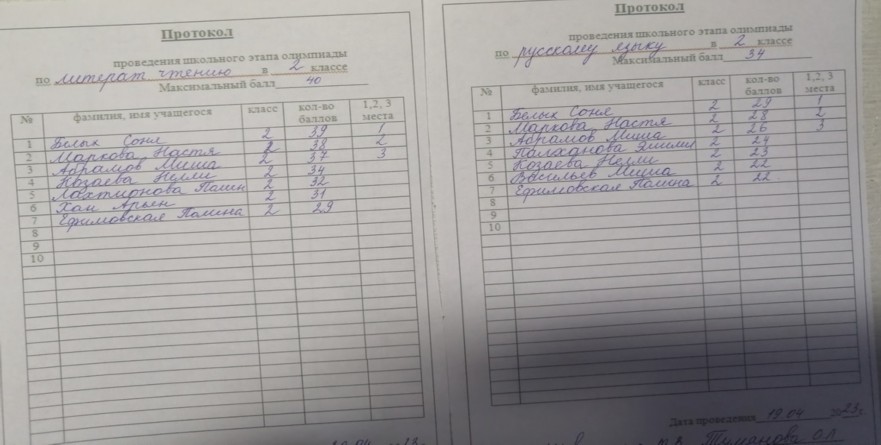 Протокол
проведения школьного этапа олимпиады
по литерат чтению в 2 классе
Максимальный балл 40
№ фамилия, имя учащегося класс кол-во баллов 1,2,3 места
1 Белых Соня 2 39 1
2 Маркова Настя 2 38 2
3 Абрамов Миша 2 37 3
4 Козаева Нелли 2 34
5 2 32
6 Хан Арьян 2 31
7 Ефимовская Полина 2 29
8
9
10
Протокол
проведения школьного этапа олимпиады
по русскому языку в 2 классе
Максимальный балл 34
№ фамилия, имя учащегося класс кол-во баллов 1,2,3 места
1 Белых Соня 2 29 1
2 Маркова Настя 2 28 2
3 Абрамов Миша 2 26 3
4 2 24
5 Козаева Нелли 2 23
6 Васильев Миша 2 22
7 Ефимовская Полина 2 22
8
9
10
Дата проведения 19.04 2023г